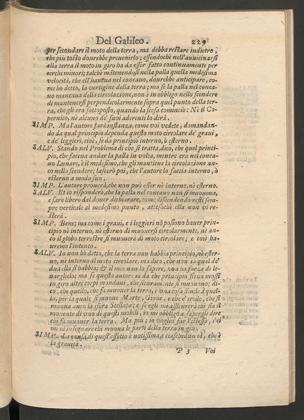 Del Galileo. 229
per secondare il moto della terra, ma debba restare indietro,
che più tosto dovrebbe prevenirlo; essendochè nell'avvicinarsi
alla terra il moto in giro ha da esser fatto continuamente per
cerchi minori; talchè mantenendosi nella palla quella medesima
velocità, che ell'haveva nel concavo, dovrebbe anticipare, co-
me ho detto, la vertigine della terra
di mantenersi perpendicolarmente sopra quel punto della terra,
che gli era sottoposto, quando la scesa cominciò: Nè il Co-
pernico, nè alcuno de' suoi aderenti lo dirà.
SIMP. Ma l'autore farà instanza, come voi vedete, domandan-
do da qual principio dependa questo moto circolare de' gravi,
e de' leggieri, cioè, se da principio interno, ò esterno.
SALV. Stando nel Problema di che si tratta, dico, che quel principio,
che faceva andar la palla in volta, mentre era nel conca-
vo Lunare, è il medesimo, che gli mantiene la circolazione an-
co nello scendere; lascerò poi, che l'autore lo faccia interno, ò
esterno à modo suo.
SIMP. L'autore proverà, che non può esser nè interno, nè esterno.
SALV. Et io risponderò, che la palla nel concavo non si moveva,
e sarò libero dal dover dichiarare, come, scendendo resti sem-
pre verticale al medesimo punto, attesochè ella non vi re-
sterà.
SIMP. Bene; ma come i gravi, e i leggieri nò possono haver princi-
pio nè interno, nè esterno di muoversi circolarmente, nè an-
co il globo terrestre si muoverà di moto circolare; e così ha-
veremo l'intento.
SALV. Io non ho detto, che la terra non habbia principio, nè ester-
no, nè interno al moto circolare, ma dico, che non so qual de'
dua ella si habbia; & il mio non lo sapere, non ha forza di le-
varglielo; ma se questo autore sa da che principio sieno mossi
in giro altri corpi mondani, che sicuramente si muovono; di-
co, che quello, che fa muover la terra, è una cosa simile à quel-
la, per la quale si muove Marte, Giove, e che e' crede, che si
muova anco la sfera stellata; e se egli mi assicurerà chi sia il
movente di uno di questi mobili, io mi obbligo à sapergli dire
chi fa muover la terra. Ma più; io voglio far l'istesso, s'ei
mi sa insegnare chi muova le parti della terra in giù.
SIMP. La causa di quest'effetto è notissima, e ciaschedun sà, che è
la gravità.
P 3 Voi